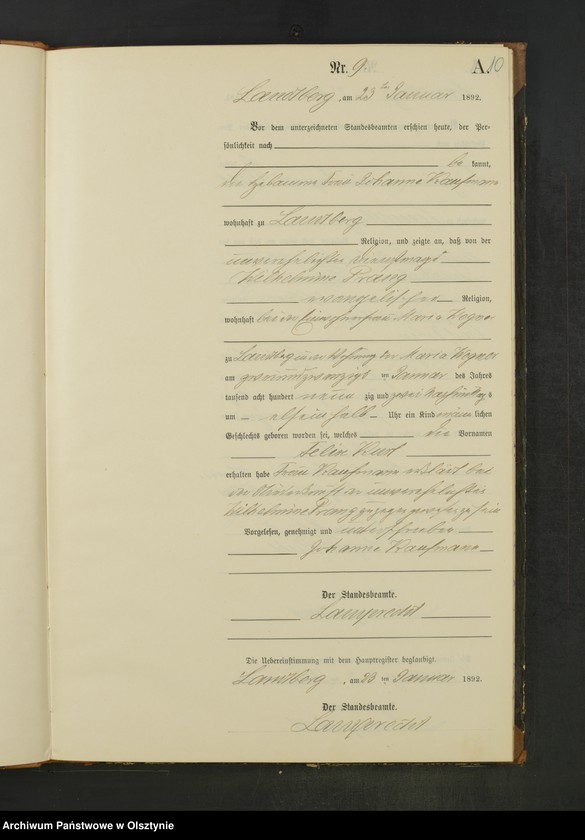 Nr. 9.
A. 10
Landsberg, am 23ten Januar 1892.
Vor dem unterzeichneten Standesbeamten erschien heute, der Per-
sönlichkeit nach
be kannt,
die Hebamme Frau Johanna Kaufmann
wohnhaft zu Landsberg
Religion, und zeigte an, daß von der
unverehelichten Dienstmagd
Wilhelmine Prang
evangelischer Religion,
wohnhaft bei der Maria Wegner
zu Landsberg in der Wohnung der Maria Wegner
am zweiundzwanzigsten Januar des Jahres
tausend acht hundert neun zig und zwei Nachmittags
um elfeinhalb Uhr ein Kind männ lichen
Geschlechts geboren worden sei, welches die Vornamen
Felix Kurt
erhalten habe Frau Kaufmann erklärt bei
der Niederkunft der unverehelichten
Wilhelmine Prang zugegen gewesen zu sein
Vorgelesen, genehmigt und unterschrieben
Johanna Kaufmann
Der Standesbeamte.
Lamprecht
Die Uebereinstimmung mit dem Hauptregister beglaubigt.
Landsberg, am 23ten Januar 1892.
Der Standesbeamte.
Lamprecht
Archiwum Państwowe w Olsztynie